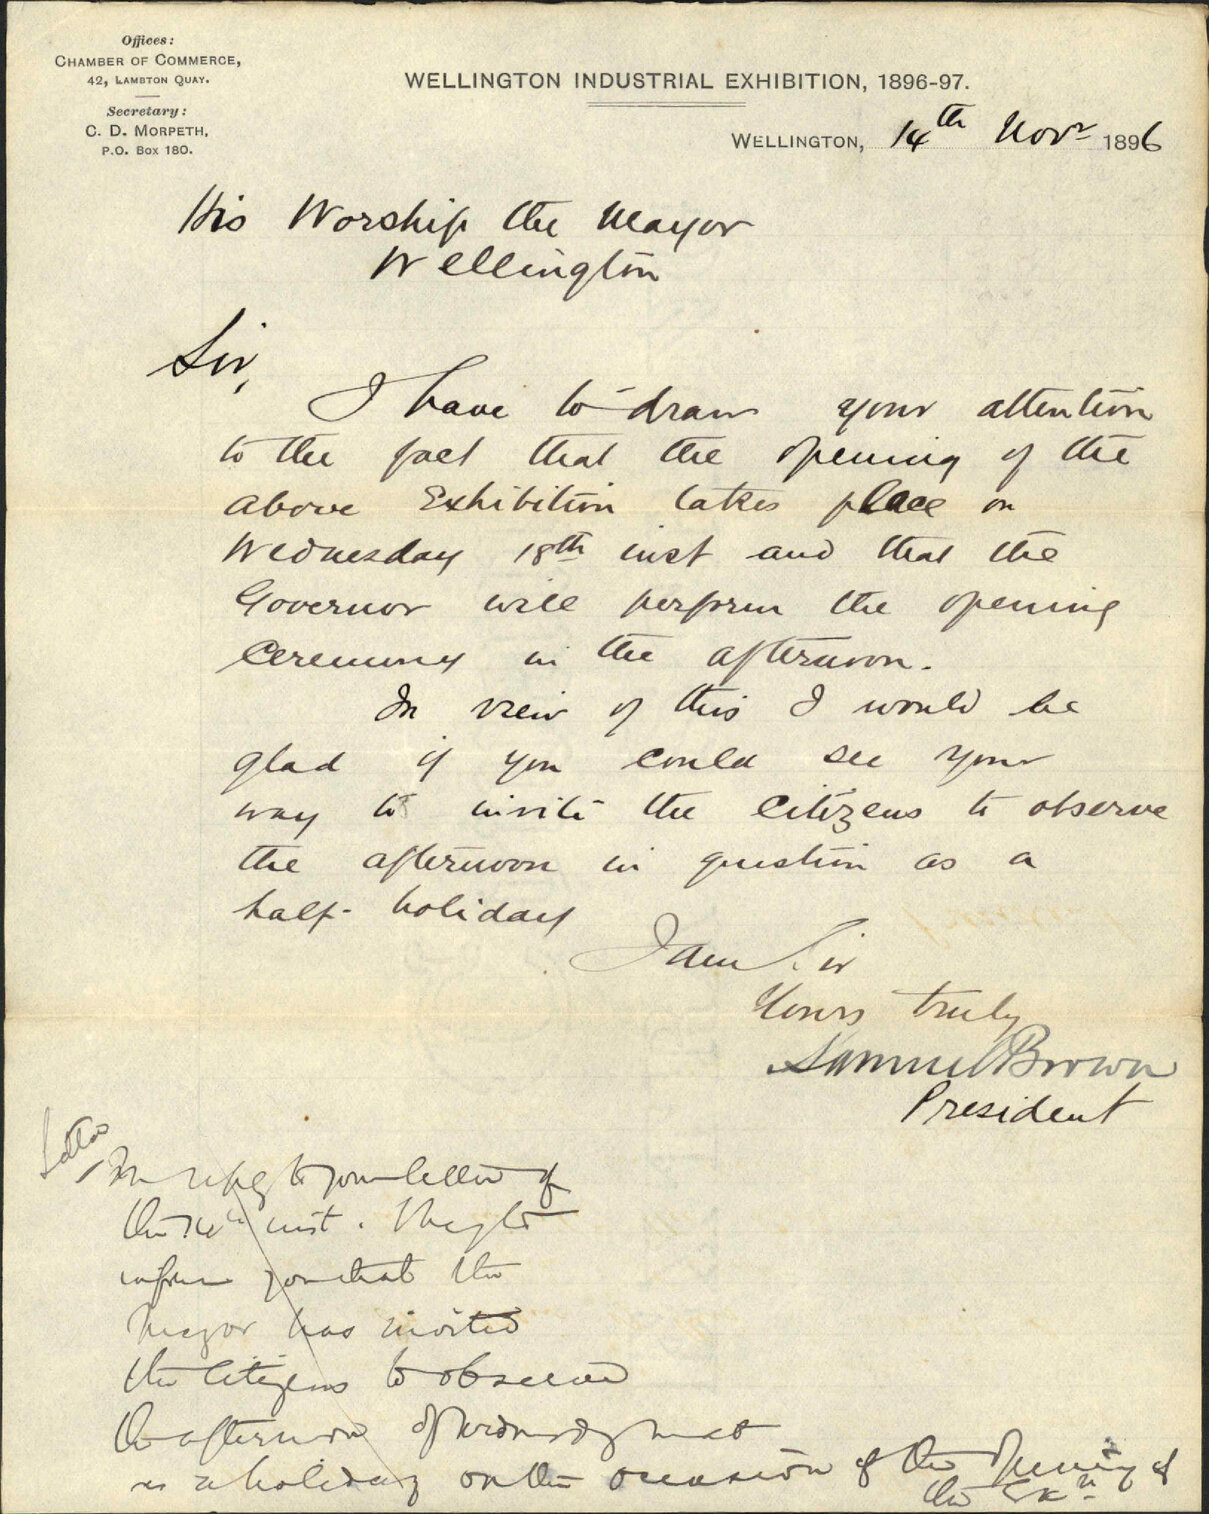 Offices:
CHAMBER OF COMMERCE,
42, LAMBTON QUAY.
Secretary:
C. D. MORPETH,
P.O. Box 180.
WELLINGTON INDUSTRIAL EXHIBITION, 1896-97.
WELLINGTON, 14th Novr 1896
His Worship the Mayor
Wellington
Sir,
I have to draw your attention
to the fact that the opening of the
above Exhibition takes place on
Wednesday 18th inst and that the
Governor will perform the opening
ceremony in the afternoon.
In view of this I would be
glad if you could see your
way to invite the citizens to observe
the afternoon in question as a
half-holiday
I am Sir
Yours truly
Samuel Brown
President
In reply to your letter of
the 14th inst. I beg to
inform you that the
Mayor has invited
the Citizens to observe
the afternoon of Wednesday next
as a holiday on the occasion of the Opening of
the Exn.